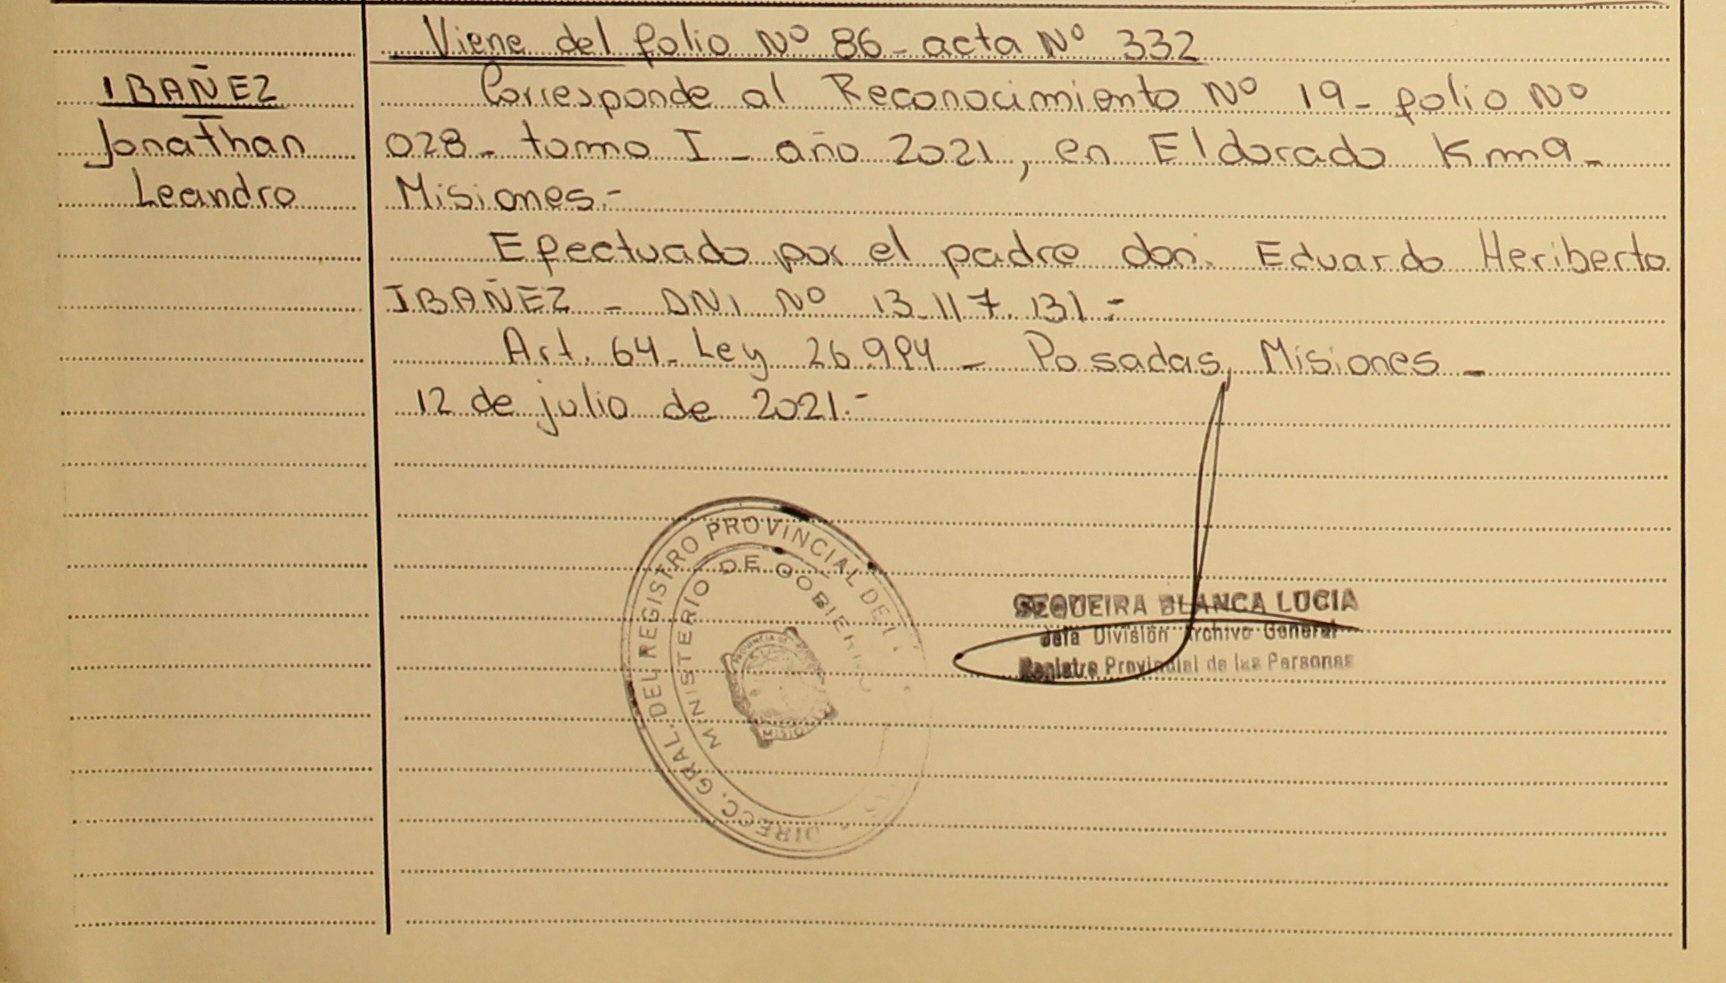 Viene del folio Nº 86 - acta Nº 332
IBAÑEZ
Jonathan
Leandro
Corresponde al Reconocimiento Nº 19 - folio Nº
028 - tomo I - año 2021, en Eldorado Km 9 -
Misiones.-
Efectuado por el padre don: Eduardo Heriberto
IBAÑEZ - DNI Nº 13.117.131.-
Art. 64 - Ley 26.994 - Posadas, Misiones -
12 de julio de 2021.-
DIRECC. GRAL. DEL REGISTRO PROVINCIAL DE
MINISTERIO DE GOBIERNO
PROVINCIA DE
MISIO
SEQUEIRA BLANCA LUCIA
Jefa División Archivo General
Registro Provincial de las Personas